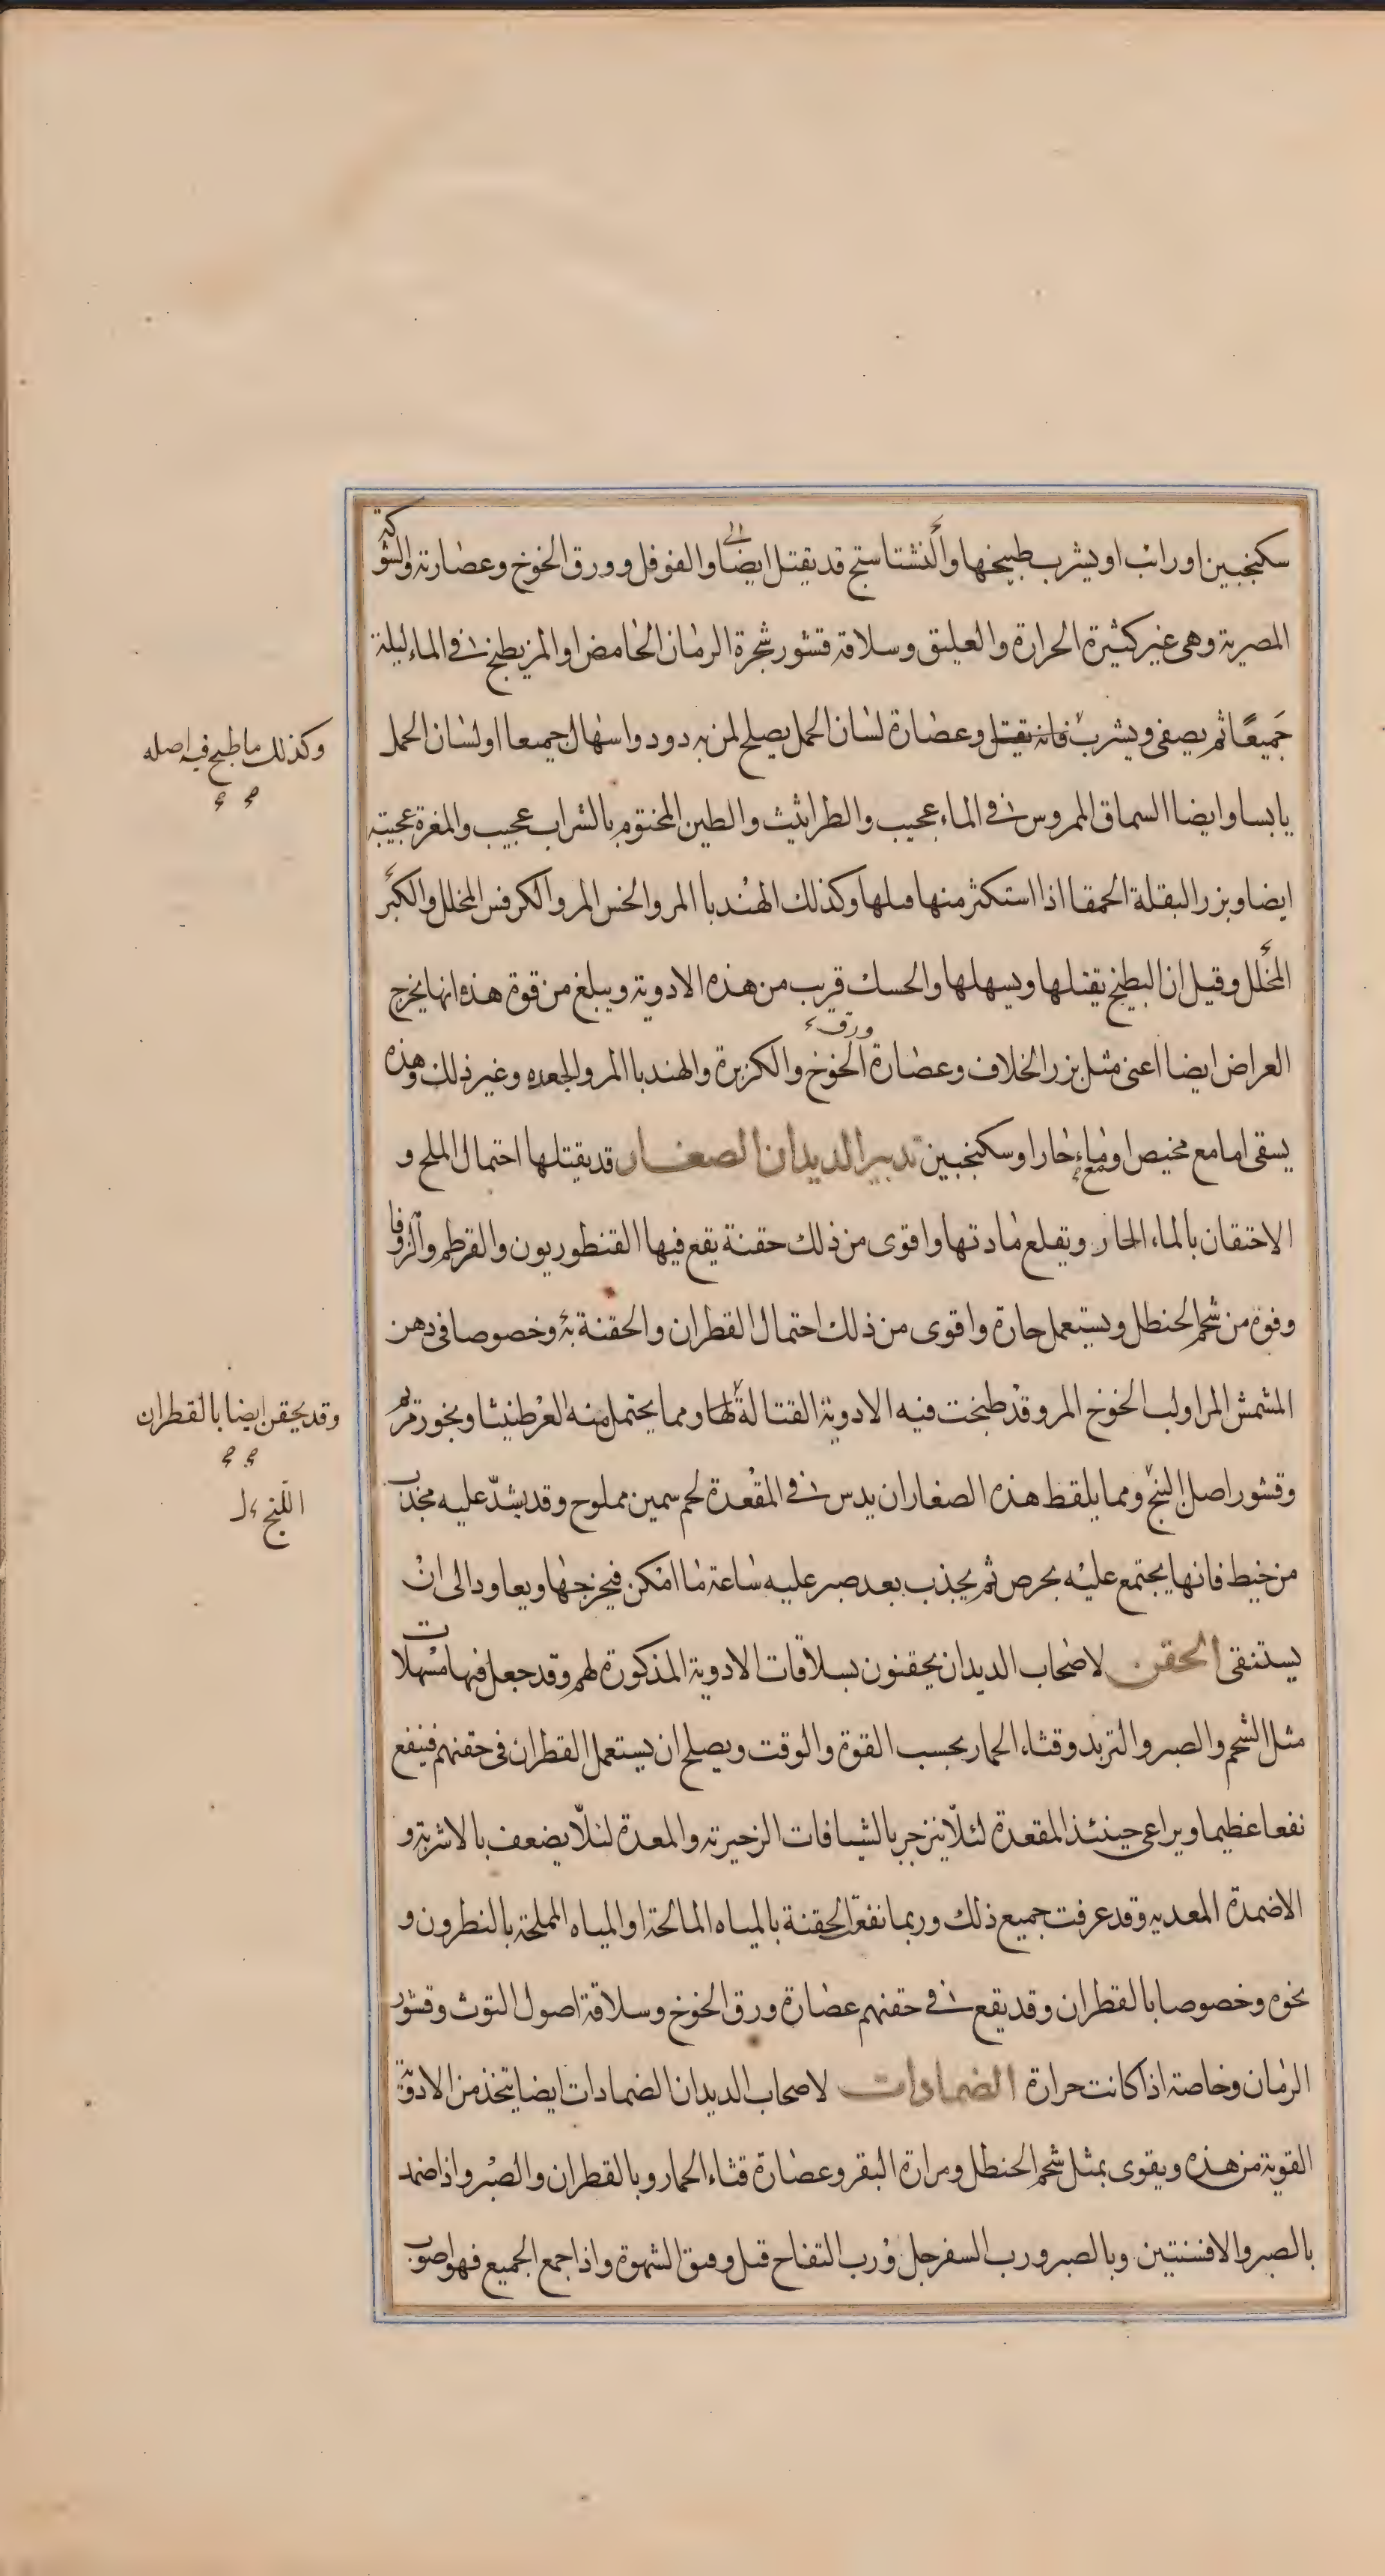 سكنجبين او رائب او يشرب طبيخها والنشتاستج قد يقتل ايضا والفوفل وورق الخوخ وعصارته والشوكة
المصرية وهى غير كثيرة الحرارة والعليق وسلاقة قشور شجرة الرمان الحامض او المز يطبخ فى الماء ليلة
جميعًا ثم يصفى ويشرب فانه يقتل وعصارة لسان الحمل يصلح لمن به دود واسهال جميعا او لسان الحمل
وكذلك ما طبخ فيه اصله
يابسا وايضا السماق الممروس فى الماء عجيب والطراثيث والطين المختوم بالشراب عجيب والمغرة عجيبة
ايضا وبزر البقلة الحمقا اذا استكثر منها قتلها وكذلك الهندبا المر والخس المر والكرفس المخلل والكبَر
المخلل وقيل ان البطيخ يقتلها ويسهلها والحسك قريب من هذه الادوية ويبلغ من قوة هذه انها يخرج
ورق
العراض ايضا اعنى مثل بزر الخلاف وعصارة الخوخ والكزبرة والهندبا المر والجعده وغير ذلك وهذه
يسقى اما مع مخيص او مع ماء حار او سكنجبين تدبير الديدان الصغار قد يقتلها احتمال الملح و
الاحتقان بالماء الحار ويقلع مادتها واقوى من ذلك حقنة يقع فيها القنطوريون والقرطم والزوفا
وقوة من شحم الحنطل ويستعمل حارة واقوى من ذلك احتمال القطران والحقنة به وخصوصا فى دهن
المشمش المر او لب الخوخ المر وقد طبخت فيه الادوية القتالة لها ومما يحتمل منه العرطنيثا وبخور مريم
وقد يحقن ايضا بالقطران
وقشور اصل النج ومما يلقط هذه الصغار ان يدس فى المقعدة لحم سمين مملوح وقد يشدّ عليه مجذب
اللنج
من خيط فانها يجتمع عليه بحرص ثم يجذب بعد صبر عليه ساعة ما امكن فيخرجها ويعاود الى ان
يستنقى الحقن لاصحاب الديدان يحقنون بسلاقات الادوية المذكورة لهم وقد جعل فيها مسهلات
مثل الشحم والصبر والتربد وقثاء الحمار بحسب القوة والوقت ويصلح ان يستعمل القطران فى حقنهم فينفع
نفعا عظيما ويراعى حينئذ المقعدة لئلّا ينزجر بالشيافات الزحيرية والمعدة لئلّا يضعف بالاشربة و
الاضمدة المعديه وقد عرفت جميع ذلك وربما نفع الحقنة بالمياه المالحة او المياه المملحة بالنطرون و
نحوه وخصوصا بالقطران وقد يقع فى حقنهم عصارة ورق الخوخ وسلاقة اصول التوث وقشور
الرمان وخاصة اذا كانت حرارة الضمادات لاصحاب الديدان الضمادات ايضا يتخذ من الادوية
القوية من هذه ويقوى بمثل شحم الحنطل ومرارة البقر وعصارة قثاء الحمار وبالقطران والصبر واذا ضمد
بالصبر والافسنتين وبالصبر ورب السفرجل ورب التفاح قتل وفتق الشهوة واذا جمع الجميع فهو اصوب